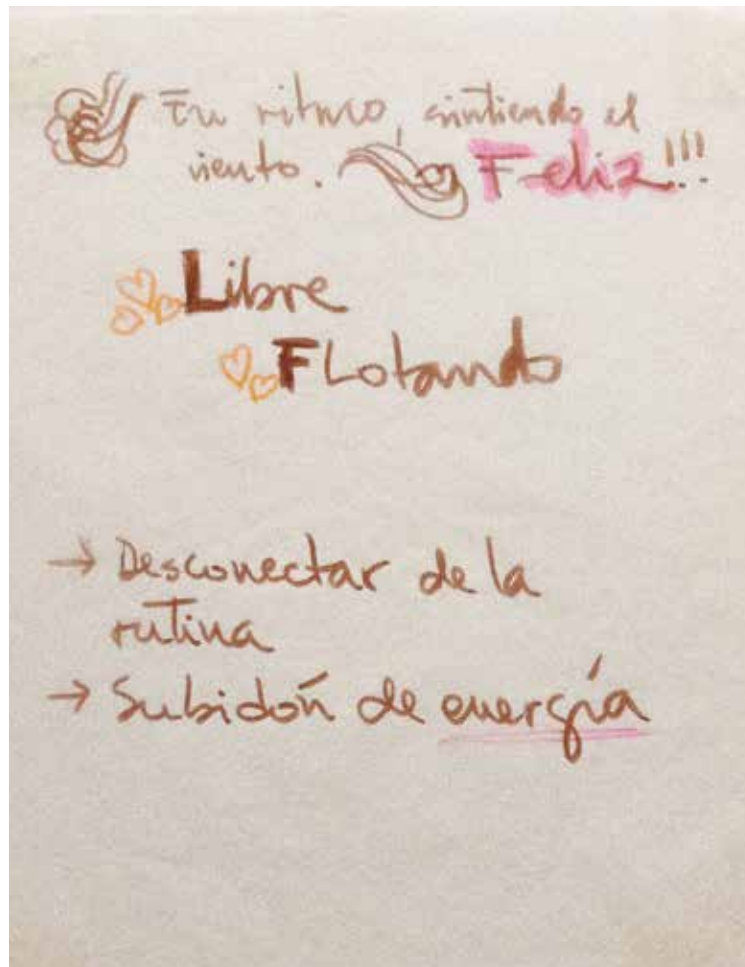 Tu ritmo, sintiendo el
viento. Feliz!!!
Libre
Flotando
→ Desconectar de la
rutina
→ Subidón de energía